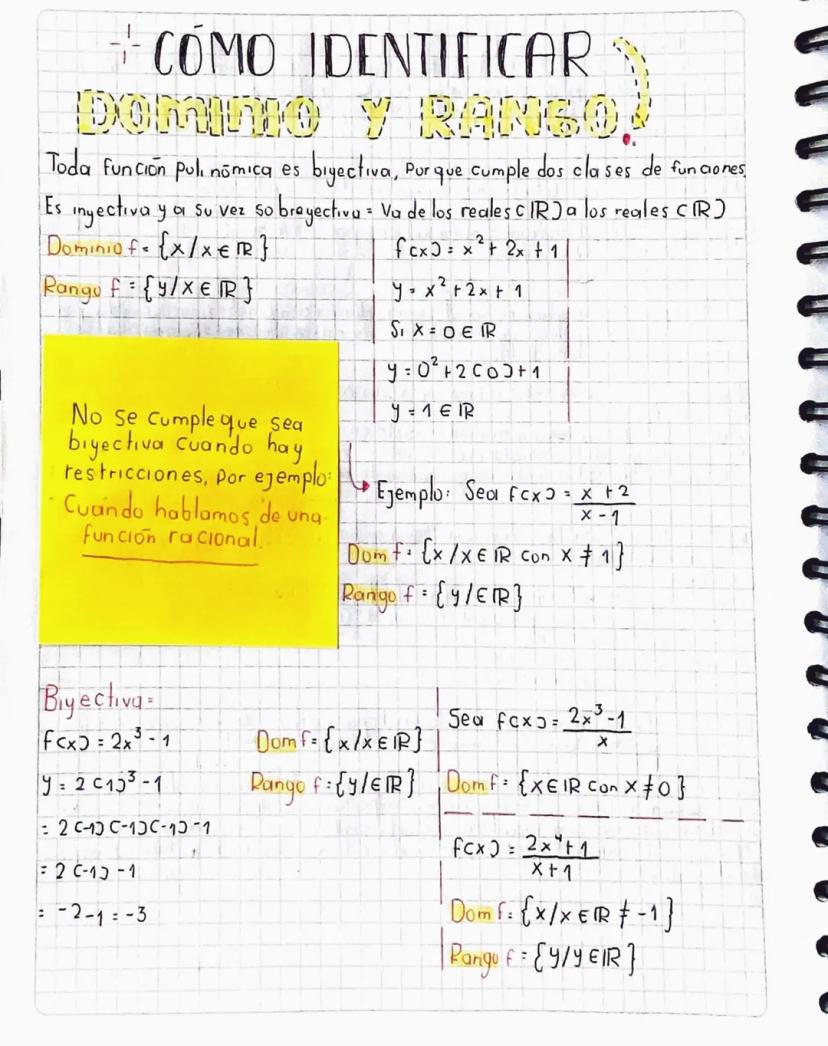 CÓMO IDENTIFICAR
DOMINIO Y RANGO.
Toda función polinómica es biyectiva, Porque cumple dos clases de funciones.
Es inyectiva y a su vez sobreyectiva = Va de los reales (IR) a los reales (IR)
Dominio f = {x/x ∈ IR}
Rango f = {y/x ∈ IR}
f(x) = x² + 2x + 1
y = x² + 2x + 1
Si x = 0 ∈ IR
y = 0² + 2(0) + 1
y = 1 ∈ IR
No se cumple que sea
biyectiva cuando hay
restricciones, por ejemplo:
Cuando hablamos de una
función racional.
Ejemplo: Sea f(x) = x + 2 / x - 1
Dom f = {x/x ∈ IR con x ≠ 1}
Rango f = {y/∈ IR}
Biyectiva =
f(x) = 2x³ - 1
y = 2(1)³ - 1
= 2(-1)(-1)(-1) - 1
= 2(-1) - 1
= -2-1 = -3
Dom f = {x/x ∈ IR}
Rango f = {y/∈ IR}
Sea f(x) = 2x³ - 1 / x
Dom f = {x ∈ IR con x ≠ 0}
f(x) = 2x⁴ + 1 / x + 1
Dom f = {x/x ∈ IR ≠ -1}
Rango f = {y/y ∈ IR}